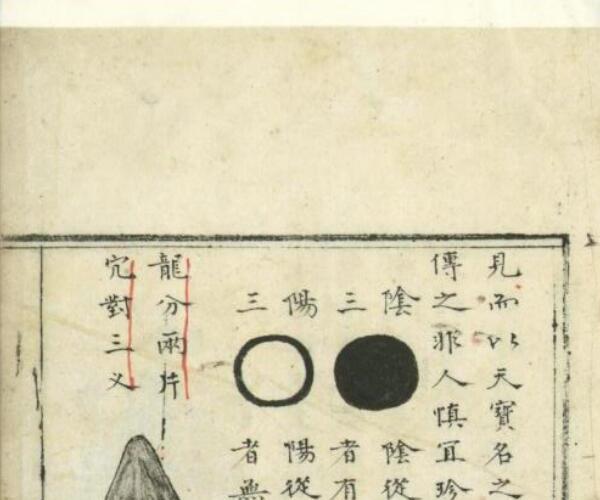 見而以天寶名之
傳之非人慎宜珍
陰
三
陰從
者有
陽
三
陽從
者無
龍分兩片
穴對三义